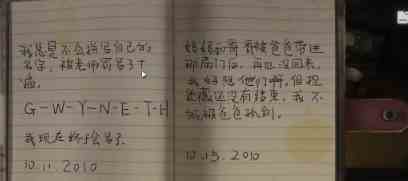 我总是不会拼写自己的
名字，被老师罚写了十
遍。
G-W-Y-N-E-T-H
我现在终于会了
10.11.2010
妈妈和哥哥被爸爸带进
那扇门后，再也没回来，
我好想他们啊。但捉
迷藏还没有结束，我不
能被爸爸抓到。
10.15.2010